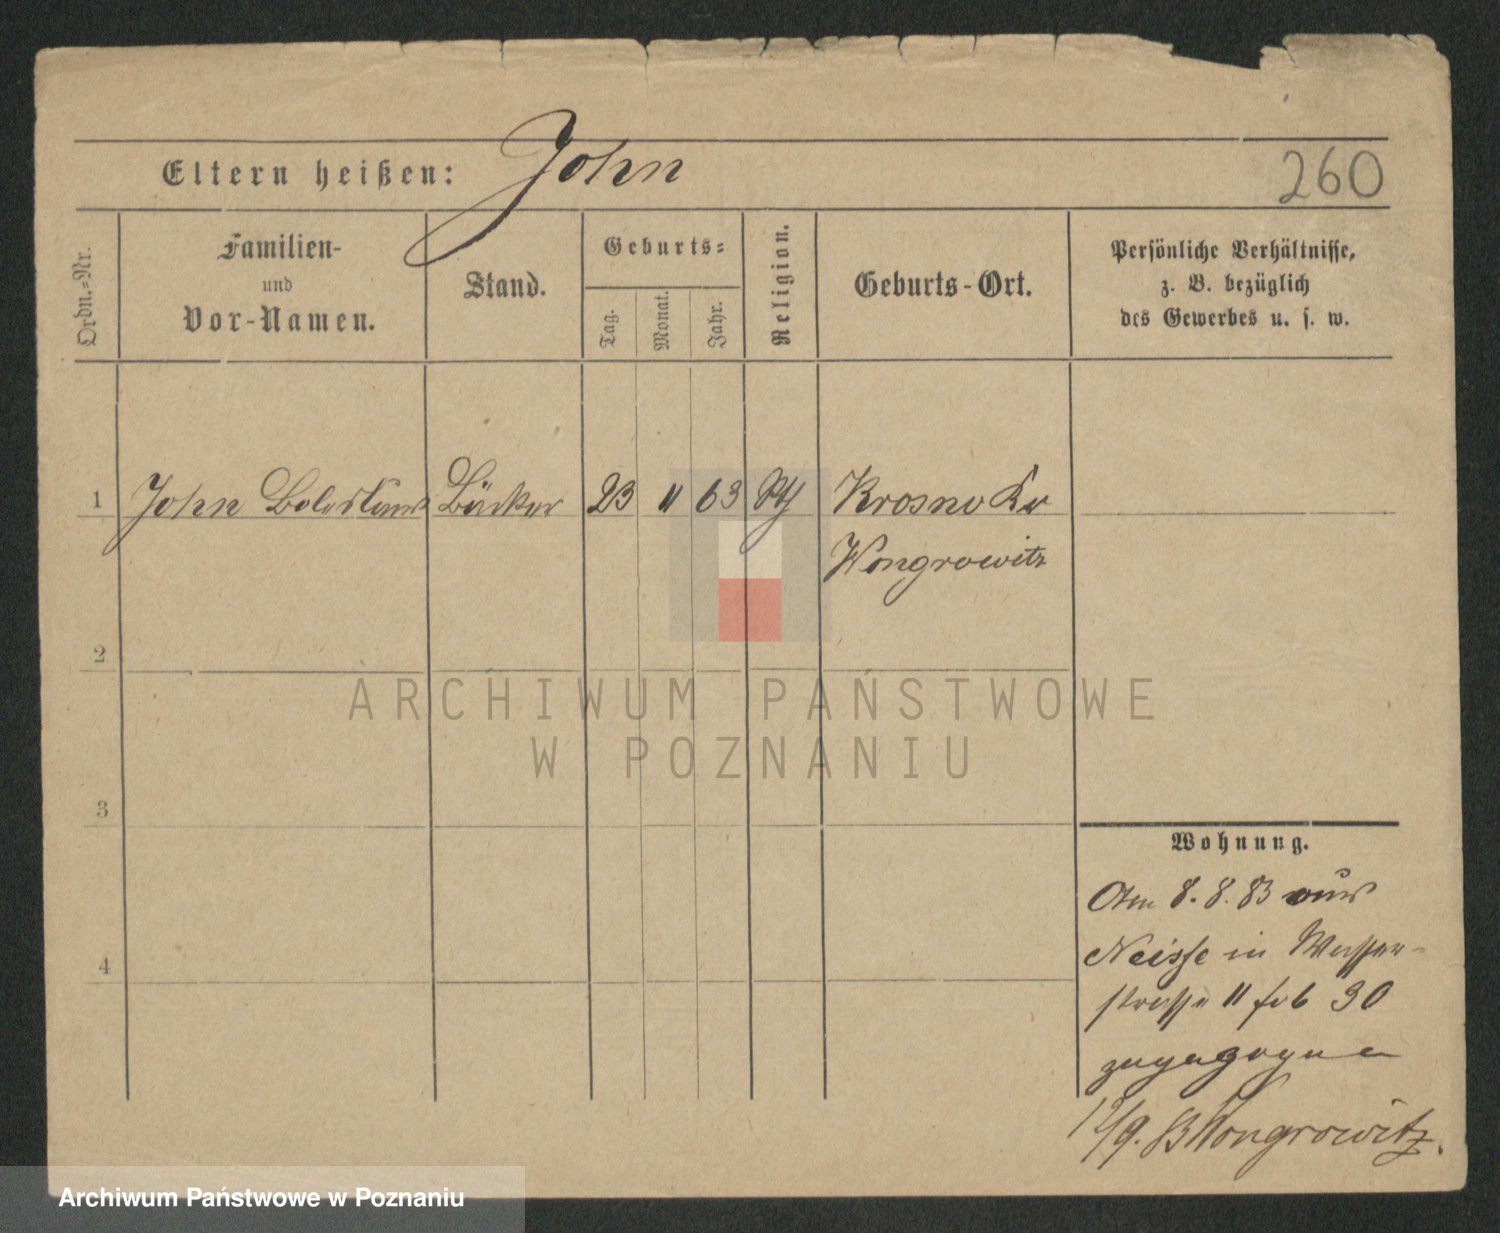 Eltern heißen: John
260
Ordn.=Nr.
Familien-
und
Vor-Namen.
Stand.
Geburts=
Tag.
Monat.
Jahr.
Religion.
Geburts-Ort.
Persönliche Verhältnisse,
z. B. bezüglich
des Gewerbes u. s. w.
1 John Boleslaus Bäcker 23 11 63 Krosno Kr
Wongrowitz
2
3
4
ARCHIWUM PAŃSTWOWE
W POZNANIU
Wohnung.
Am 8. 8. 83 aus
Neisse in Wasser-
strasse 11 30
zugezogen
12/9. 83 Wongrowitz.
Archiwum Państwowe w Poznaniu